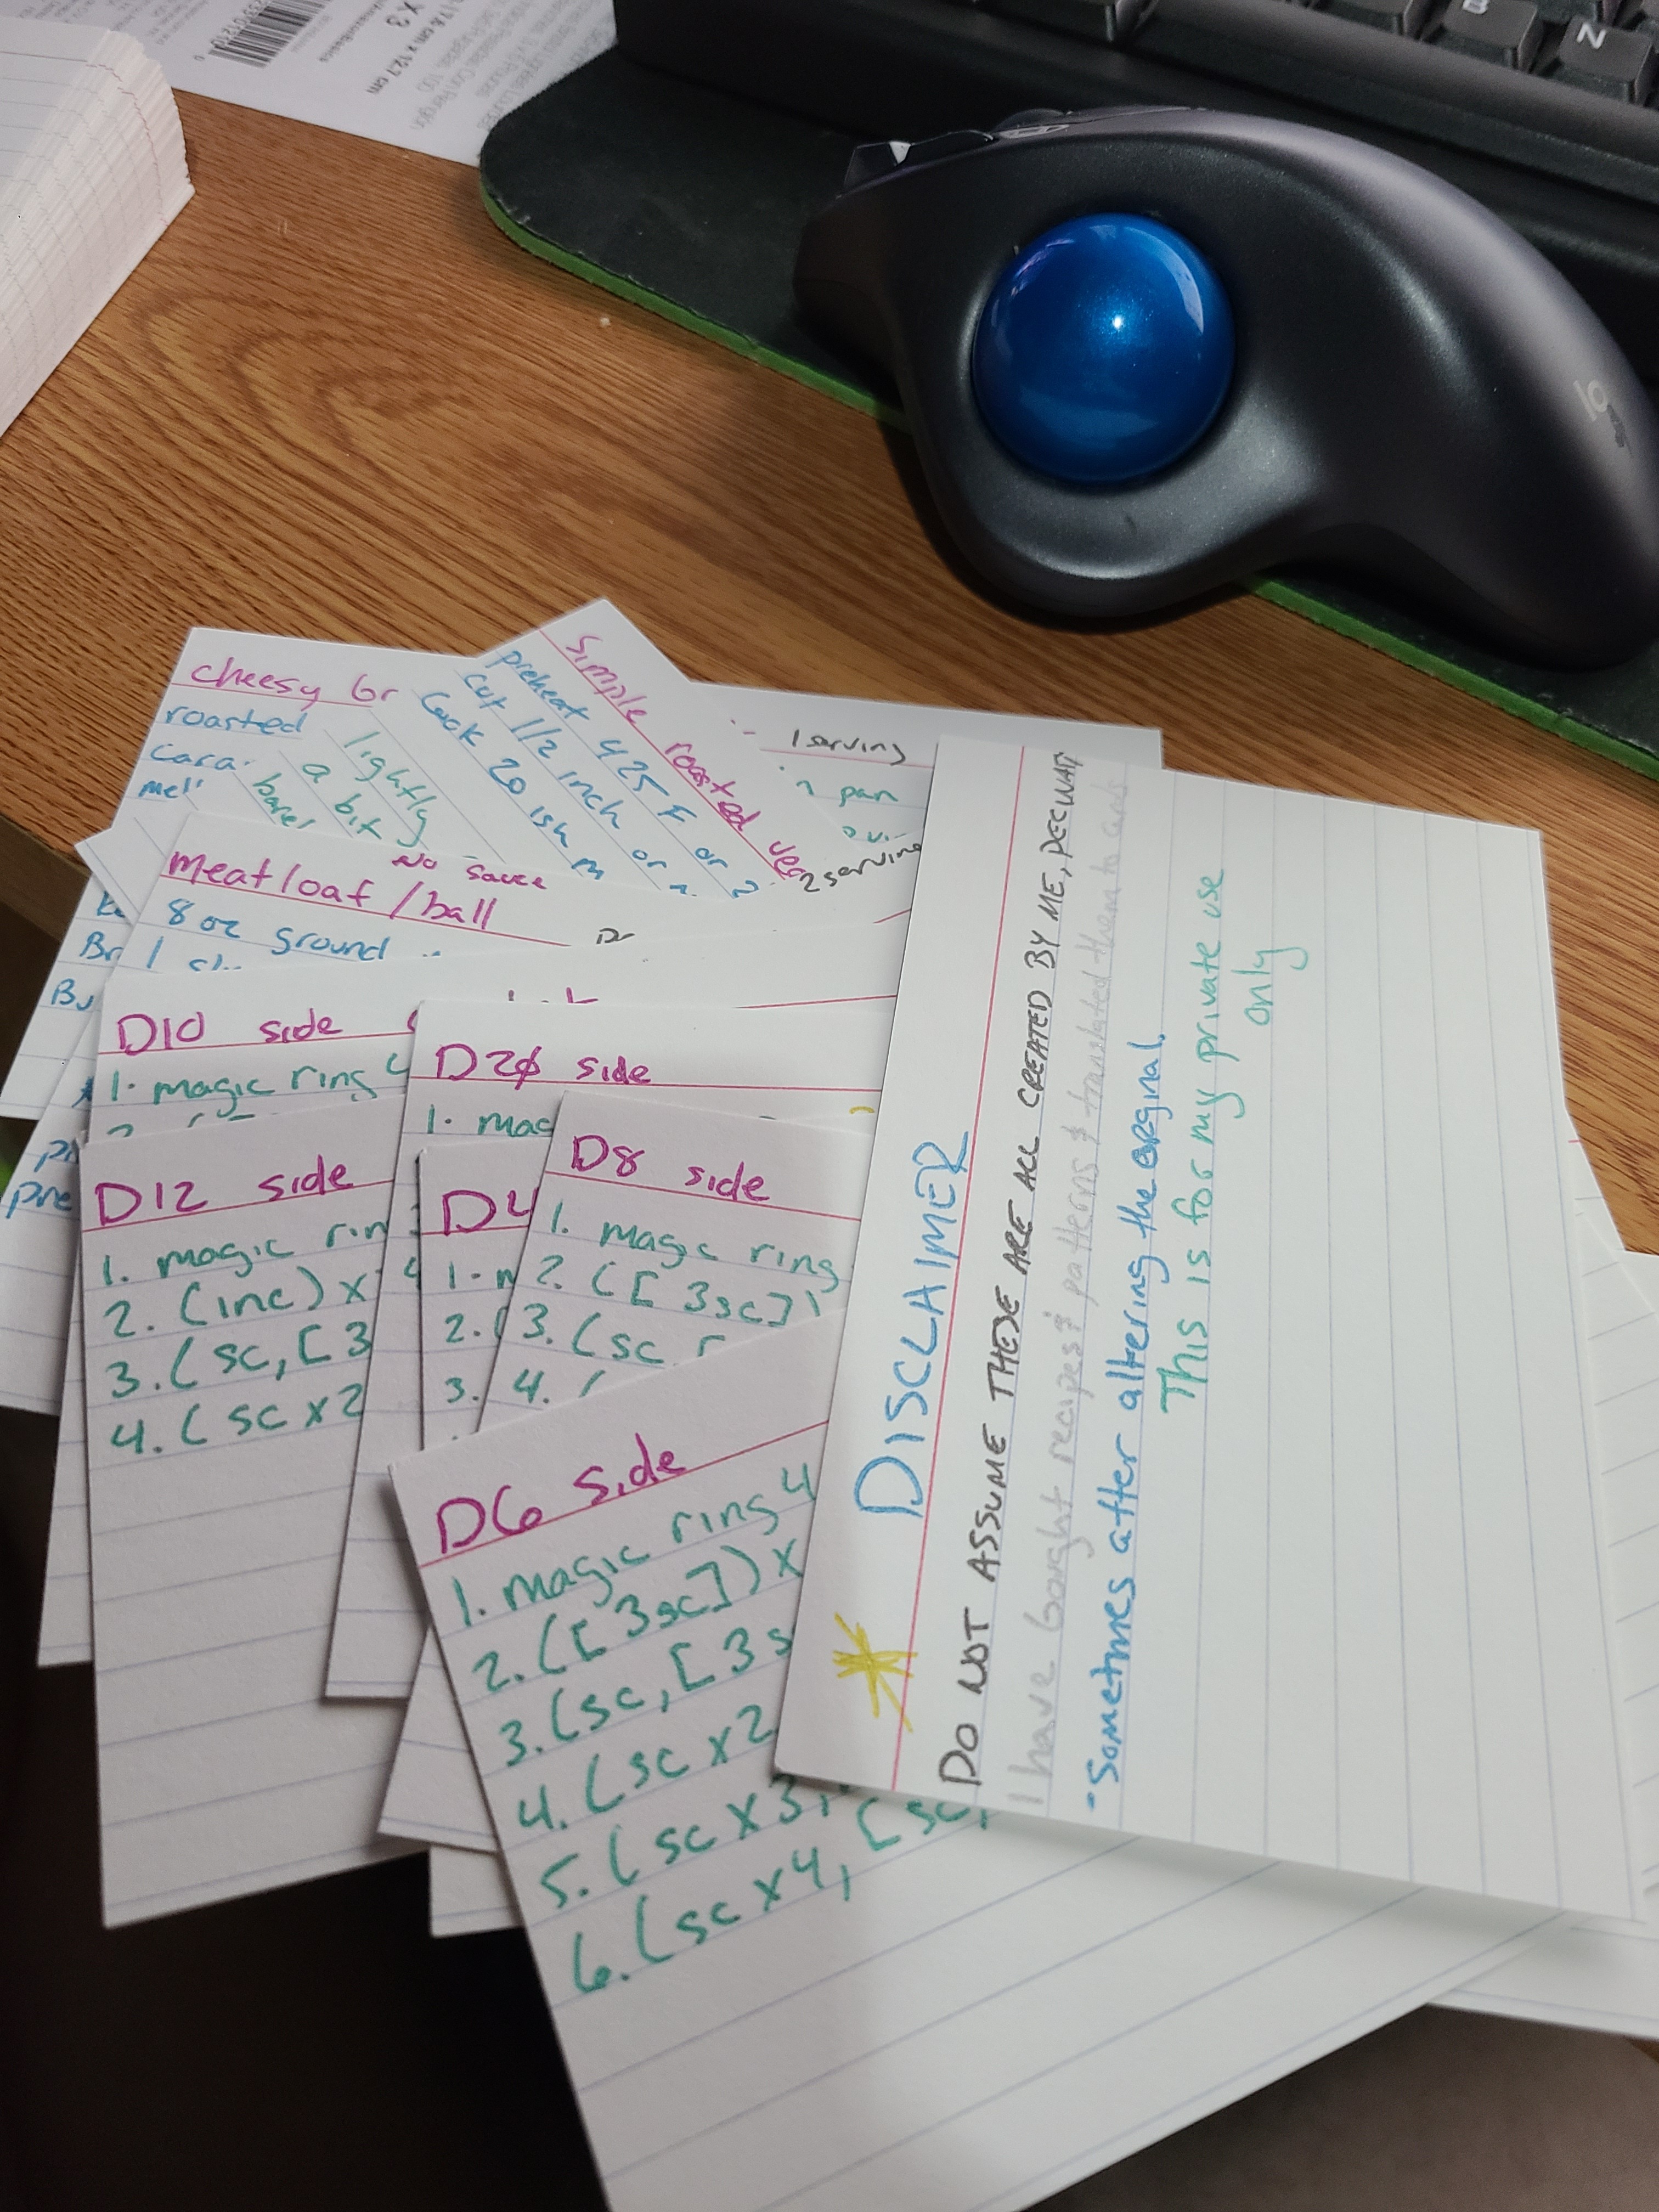 X 3
17.8 cm x 12.7 cm
B
Z
logi
cheesy br
roasted
cara
mel
lightly
a bit
Simple roasted veg
preheat 425 F or
cut 1/2 inch or
Cook 20 ish m
1 serving
pan
2 serving
No sauce
Meatloaf/ball
8 oz ground
1
Br
Bu
Pre
D10 side
1. magic ring
D20 side
1. mag
D12 side
1. magic rin
2. (inc) x
3. (sc, [3
4. (sc x2
D4
1.
2. (
3.
D8 side
1. magic ring
2. ([3sc])
3. (sc
4. (
D6 side
1. magic ring 4
2. ([3sc]) x
3. (sc, [3s
4. (sc x2
5. (sc x3,
6. (sc x4, [sc,
DISCLAIMER
DO NOT ASSUME THESE ARE ALL CREATED BY ME, PECWAN
I have bought recipes & patterns & translated them to cards
- Sometimes after altering the orginal.
This is for my private use
only